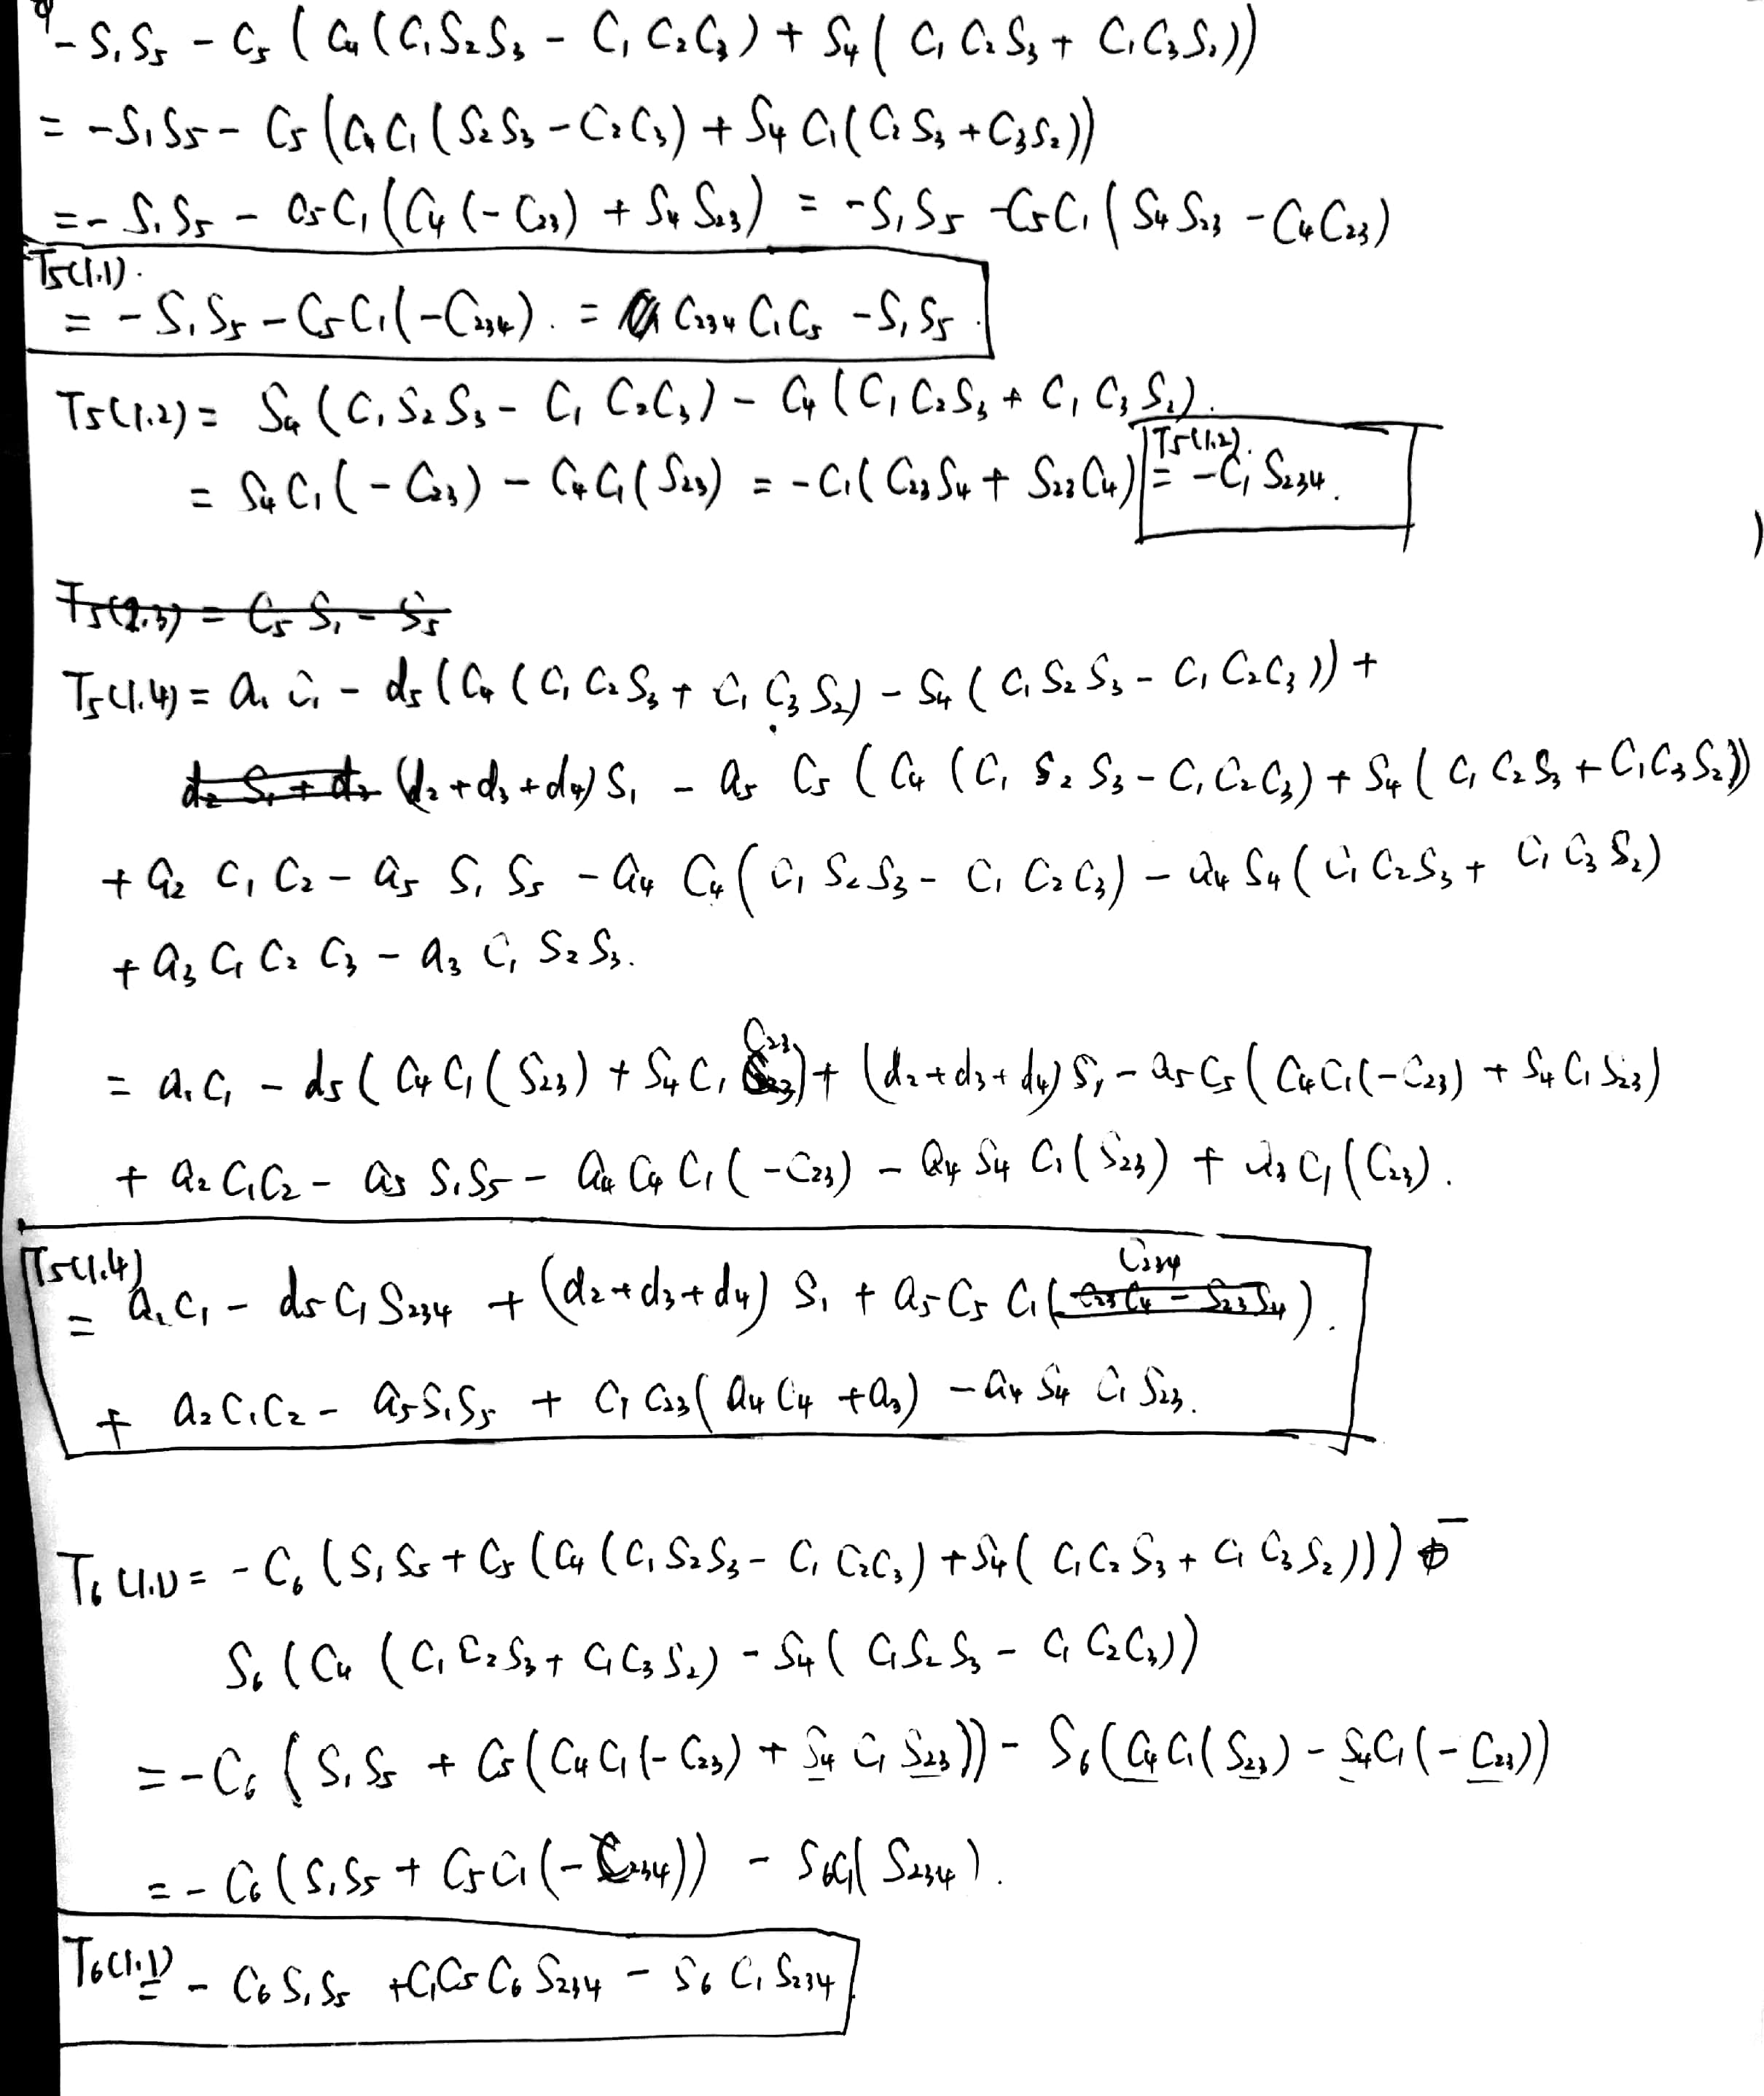 -S₁S₅ - C₅ ( C₄ ( C₁S₂S₃ - C₁C₂C₃ ) + S₄ ( C₁C₂S₃ + C₁C₃S₂ ))
= -S₁S₅ - C₅ ( C₄C₁ ( S₂S₃ - C₂C₃ ) + S₄C₁ ( C₂S₃ + C₃S₂ ))
= -S₁S₅ - C₅C₁ ( C₄ (-C₂₃) + S₄S₂₃ ) = -S₁S₅ - C₅C₁ ( S₄S₂₃ - C₄C₂₃ )
T₅(1.1).
= -S₁S₅ - C₅C₁ (-C₂₃₄). = C₂₃₄C₁C₅ - S₁S₅.
T₅(1.2) = S₄ ( C₁S₂S₃ - C₁C₂C₃ ) - C₄ ( C₁C₂S₃ + C₁C₃S₂ ).
T₅(1.2).
= S₄C₁ (-C₂₃) - C₄C₁ (S₂₃) = -C₁ ( C₂₃S₄ + S₂₃C₄ ) = -C₁S₂₃₄.
)
T₅(1.4) = a₁C₁ - d₅ ( C₄ ( C₁C₂S₃ + C₁C₃S₂ ) - S₄ ( C₁S₂S₃ - C₁C₂C₃ )) +
(d₂+d₃+d₄) S₁ - a₅C₅ ( C₄ ( C₁S₂S₃ - C₁C₂C₃ ) + S₄ ( C₁C₂S₃ + C₁C₃S₂ ))
+ a₂C₁C₂ - a₅S₁S₅ - a₄C₄ ( C₁S₂S₃ - C₁C₂C₃ ) - a₄S₄ ( C₁C₂S₃ + C₁C₃S₂ )
+ a₃C₁C₂C₃ - a₃C₁S₂S₃.
= a₁C₁ - d₅ ( C₄C₁ (S₂₃) + S₄C₁ C₂₃ ) + (d₂+d₃+d₄) S₁ - a₅C₅ ( C₄C₁ (-C₂₃) + S₄C₁S₂₃ )
+ a₂C₁C₂ - a₅S₁S₅ - a₄C₄C₁ (-C₂₃) - a₄S₄C₁ (S₂₃) + a₃C₁ (C₂₃).
T₅(1.4)
= a₁C₁ - d₅C₁S₂₃₄ + (d₂+d₃+d₄) S₁ + a₅C₅C₁ ( C₂₃₄ ).
+ a₂C₁C₂ - a₅S₁S₅ + C₁C₂₃ ( a₄C₄ + a₃ ) - a₄S₄C₁S₂₃.
T₆(1.1) = -C₆ ( S₁S₅ + C₅ ( C₄ ( C₁S₂S₃ - C₁C₂C₃ ) + S₄ ( C₁C₂S₃ + C₁C₃S₂ ))) -
S₆ ( C₄ ( C₁C₂S₃ + C₁C₃S₂ ) - S₄ ( C₁S₂S₃ - C₁C₂C₃ ))
= -C₆ ( S₁S₅ + C₅ ( C₄C₁ (-C₂₃) + S₄C₁S₂₃ )) - S₆ ( C₄C₁ (S₂₃) - S₄C₁ (-C₂₃))
= -C₆ ( S₁S₅ + C₅C₁ (-C₂₃₄)) - S₆C₁ ( S₂₃₄ ).
T₆(1.1) = -C₆S₁S₅ + C₁C₅C₆S₂₃₄ - S₆C₁S₂₃₄